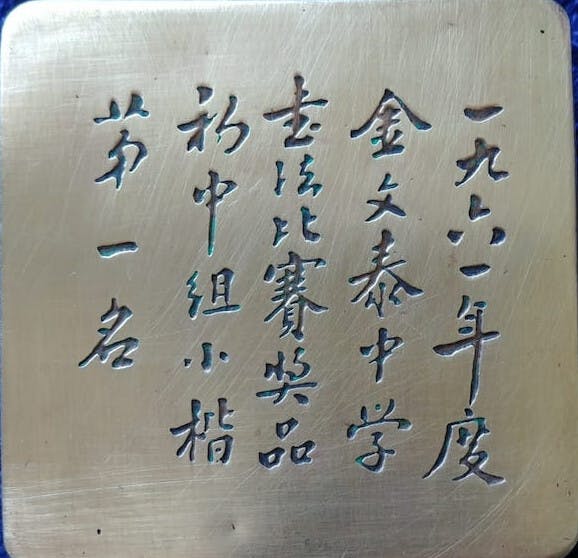 一九六一年度
金文泰中学
书法比賽奬品
初中組小楷
第一名